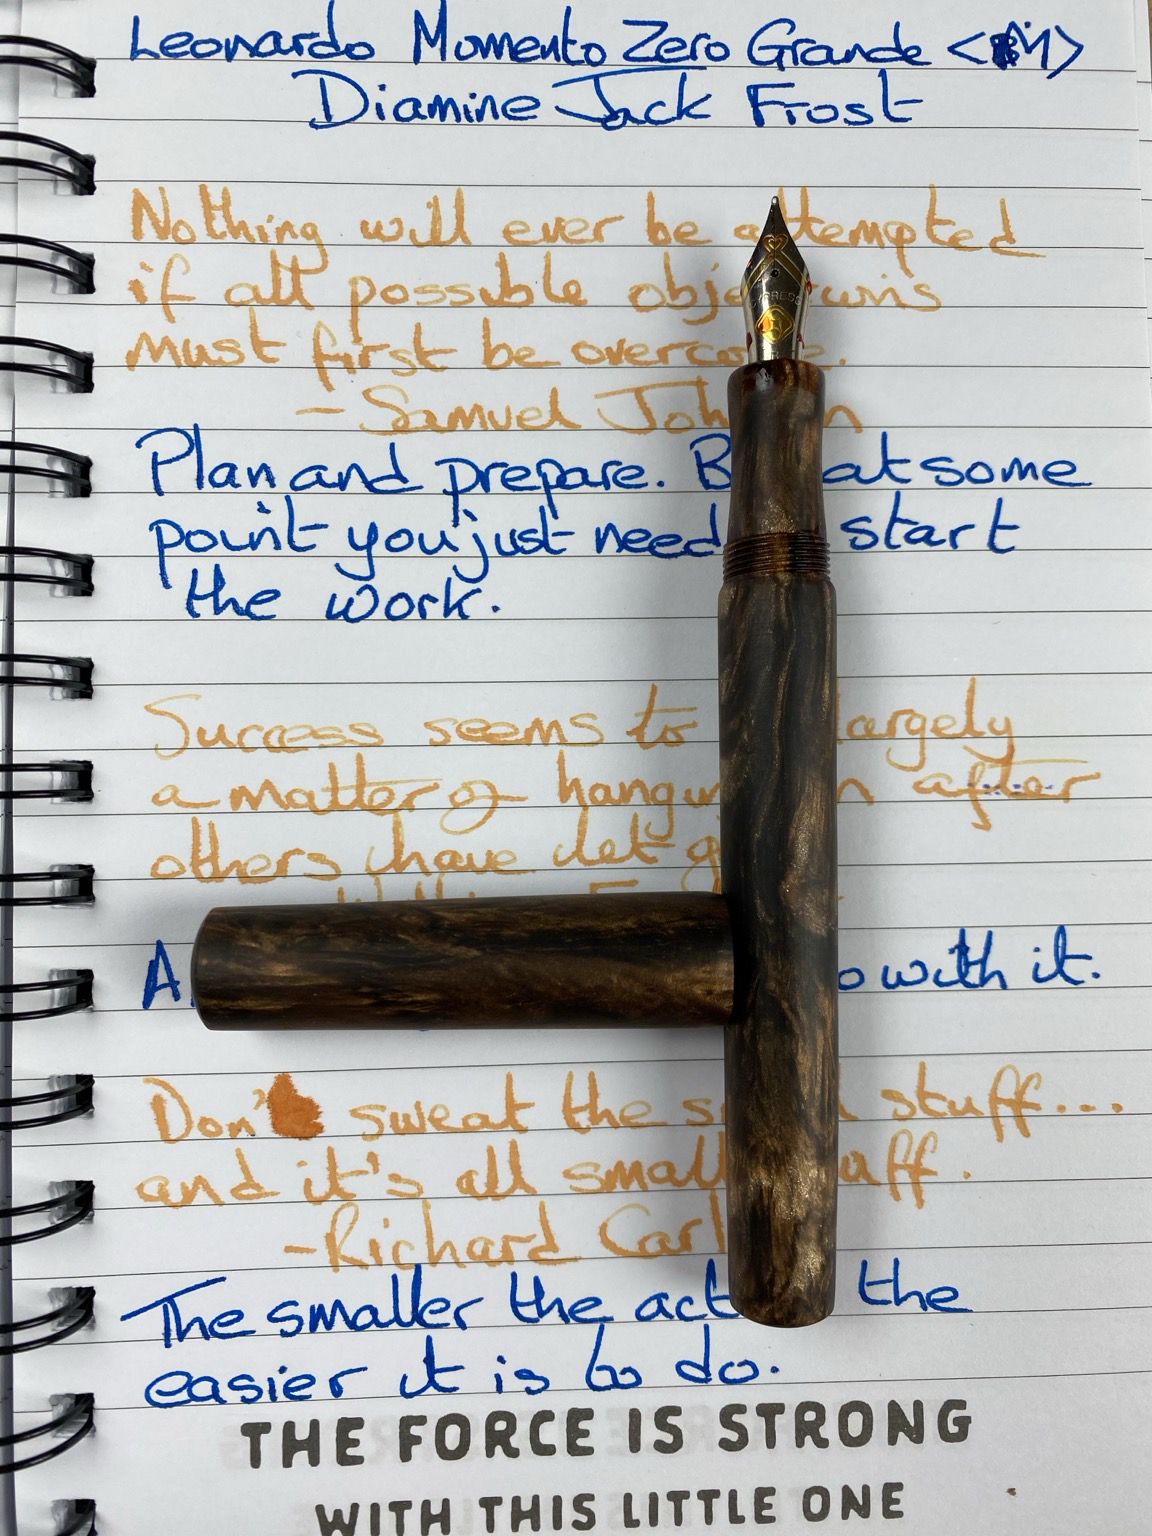 Leonardo Momento Zero Grande <M>
Diamine Jack Frost
Nothing will ever be attempted
if all possible
must first be
- Samuel
Plan and prepare. at some
point you just need start
the work.
Success seems to largely
a matter of after
others have let
with it.
Don't sweat the stuff...
and it's all small
-Richard
The smaller the the
easier it is to do.
THE FORCE IS STRONG
WITH THIS LITTLE ONE